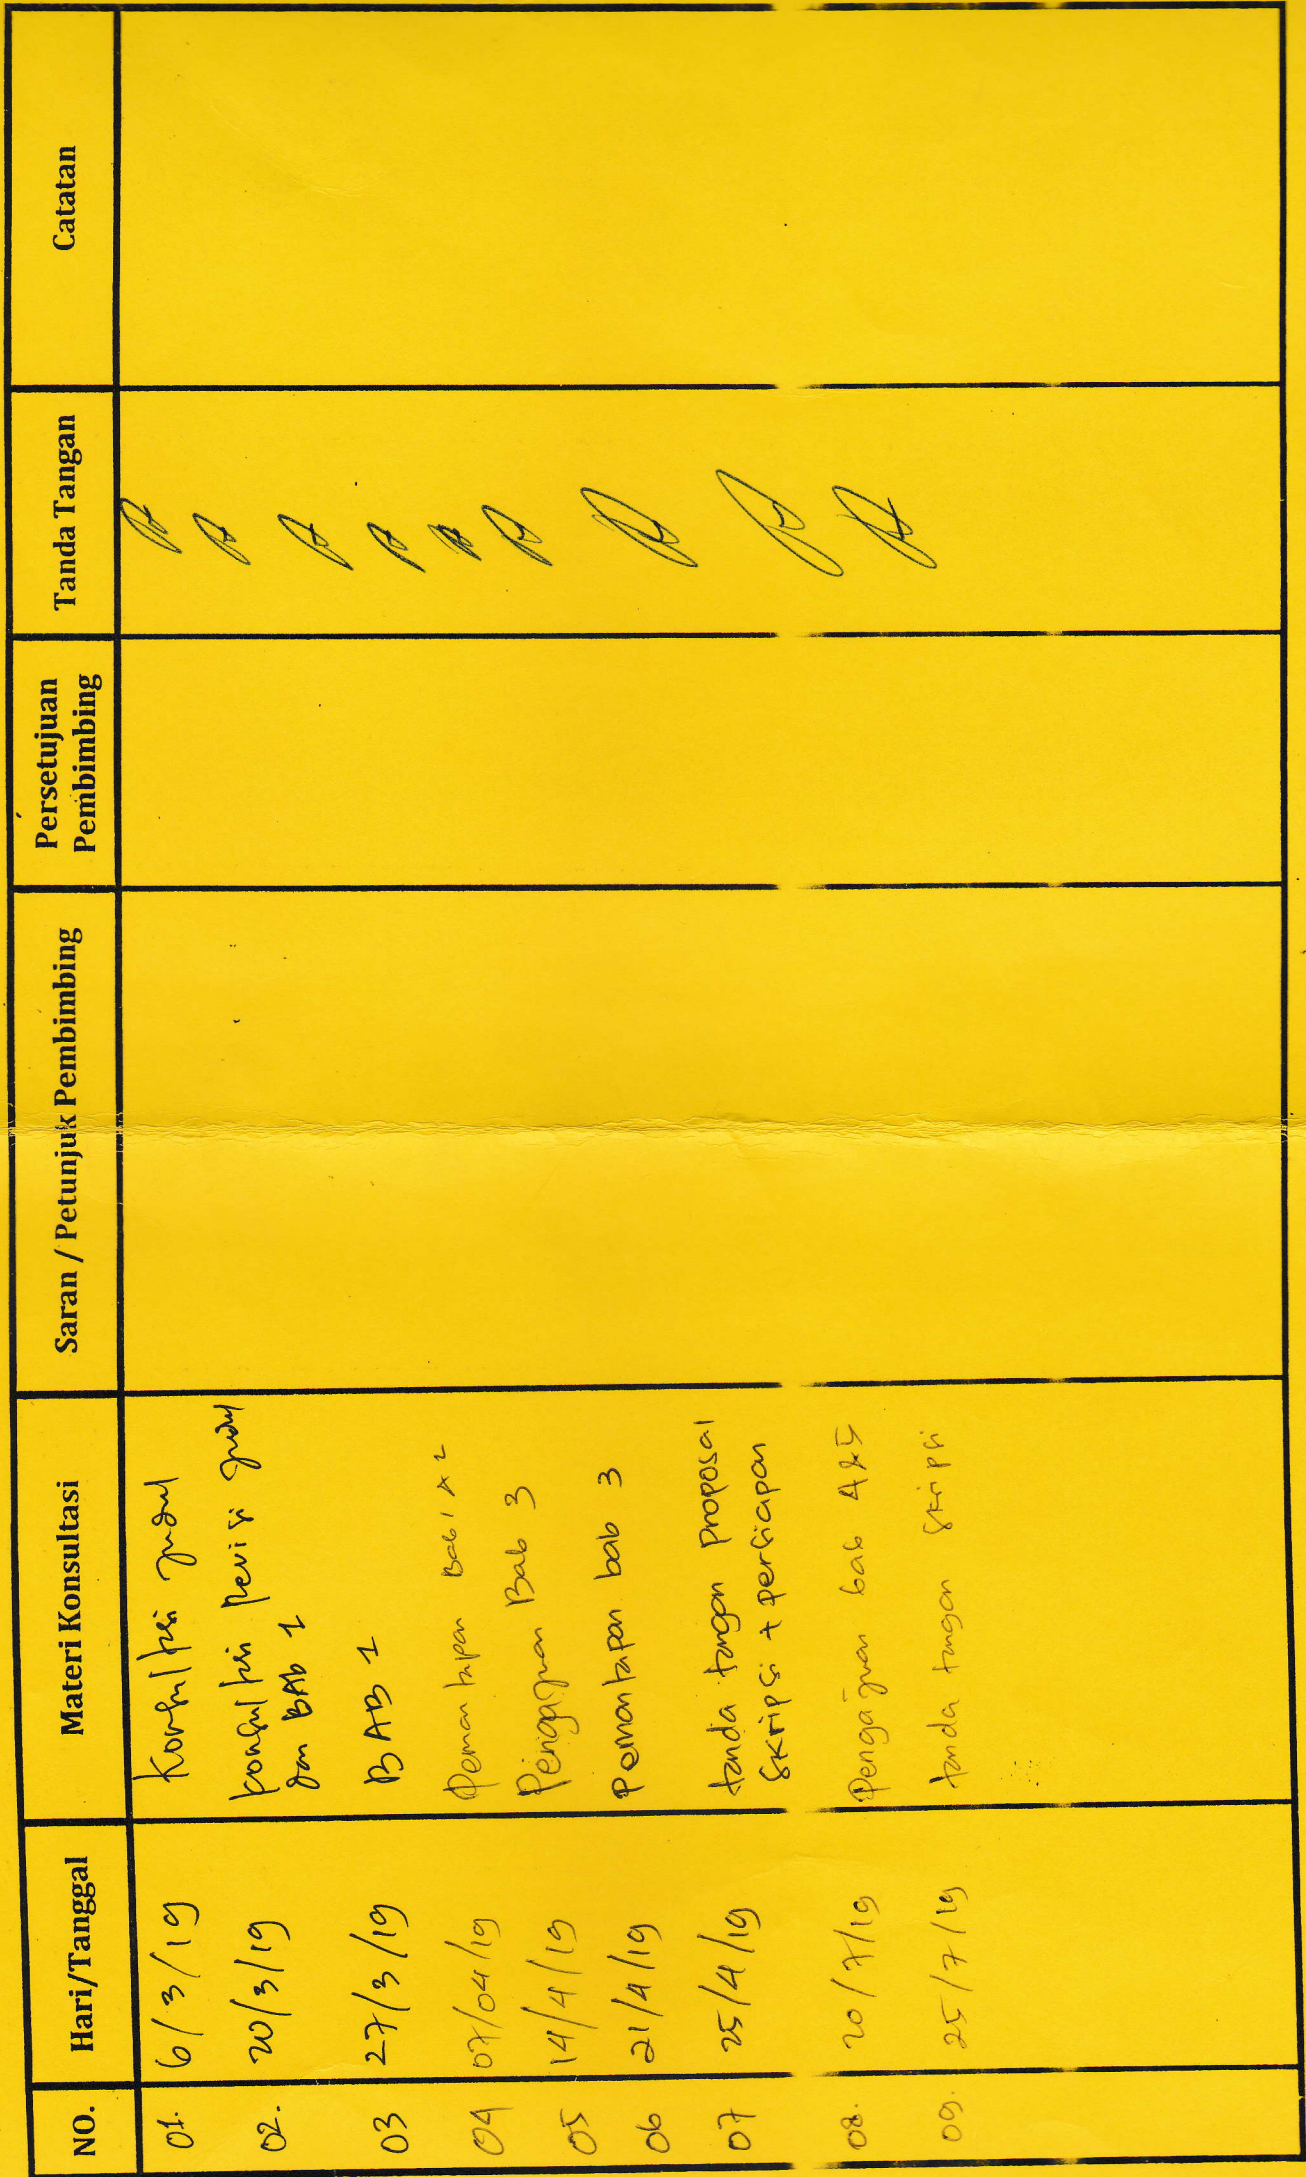 NO. Hari/Tanggal Materi Konsultasi Saran / Petunjuk Pembimbing Persetujuan Pembimbing Tanda Tangan Catatan
01. 6/3/19 Konsultasi judul
02. 20/3/19 konsultasi Revisi judul
dan BAB 1
03 27/3/19 BAB 1
04 07/04/19 Pemantapan Bab 1 & 2
05 14/4/19 Pengajuan Bab 3
06 21/4/19 Pemantapan bab 3
07 25/4/19 tanda tangan proposal
skripsi + persiapan
08. 20/7/19 Pengajuan bab 4&5
09. 25/7/19 tanda tangan skripsi